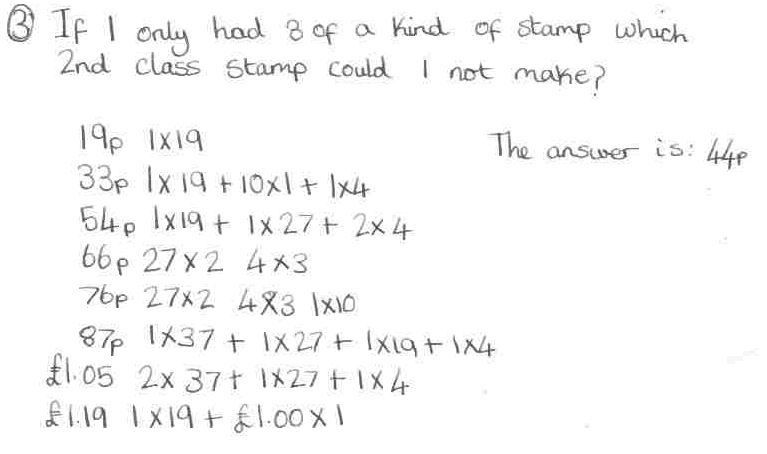 ③ If I only had 3 of a kind of stamp which
2nd class stamp could I not make?
19p 1x19
The answer is: 44p
33p 1x19 + 10x1 + 1x4
54p 1x19 + 1x27 + 2x4
66p 27x2 4x3
76p 27x2 4x3 1x10
87p 1x37 + 1x27 + 1x19 + 1x4
£1.05 2x37 + 1x27 + 1x4
£1.19 1x19 + £1.00x1